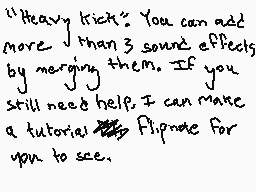 "Heavy Kick": You can add
more than 3 sound effects
by merging them. If you
still need help, I can make
a tutorial flipnote for
you to see.